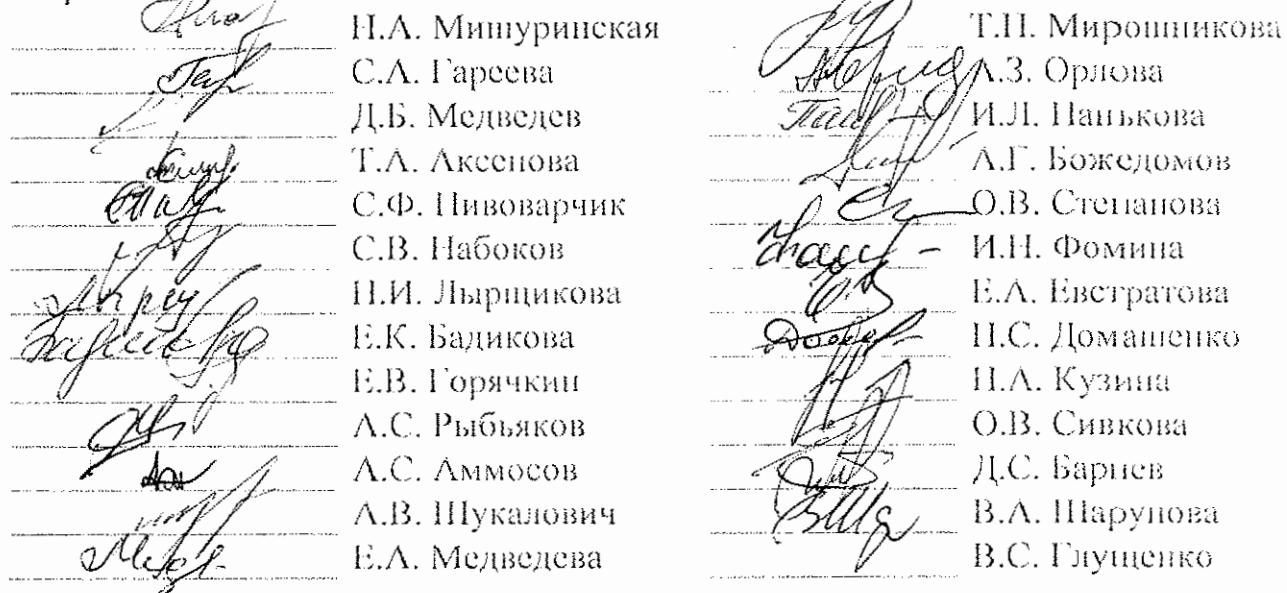 Н.А. Мишуринская
С.А. Гареева
Д.Б. Медведев
Т.А. Аксенова
С.Ф. Пивоварчик
С.В. Набоков
Н.И. Лырщикова
Е.К. Бадикова
Е.В. Горячкин
А.С. Рыбьяков
А.С. Аммосов
А.В. Шукалович
Е.А. Медведева
Т.П. Мирошникова
А.З. Орлова
И.Л. Панькова
А.Г. Божедомов
О.В. Степанова
И.Н. Фомина
Е.А. Евстратова
Н.С. Домашенко
Н.А. Кузина
О.В. Сивкова
Д.С. Бариев
В.А. Шарунова
В.С. Глущенко